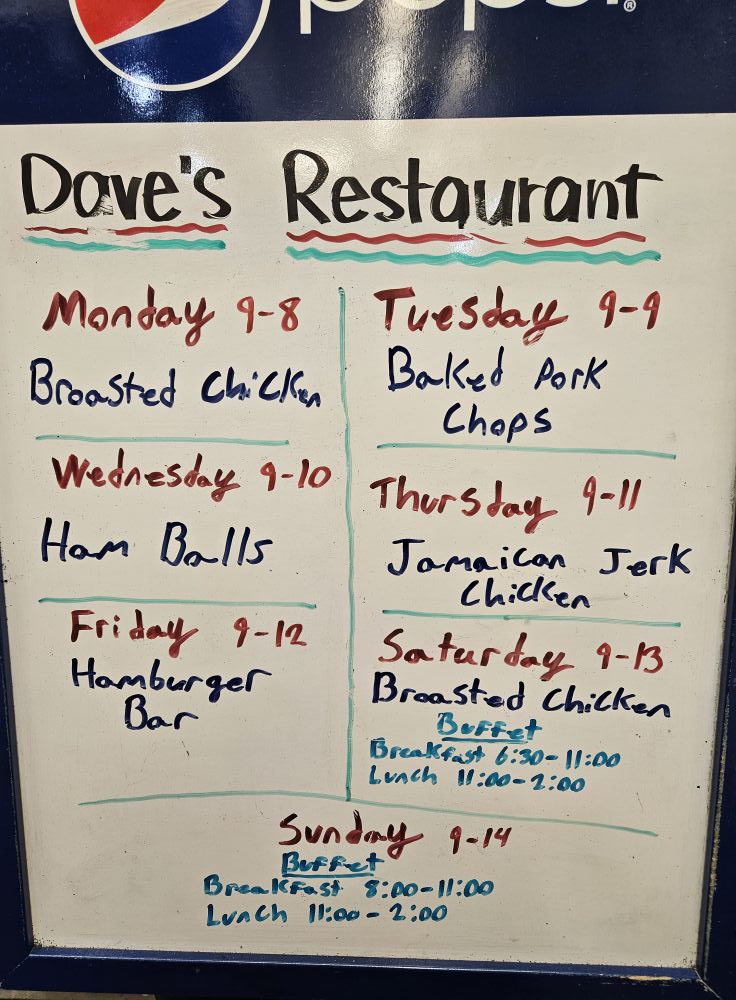 pepsi®
Dave's Restaurant
Monday 9-8
Broasted Chicken
Tuesday 9-9
Baked Pork
Chops
Wednesday 9-10
Ham Balls
Thursday 9-11
Jamaican Jerk
Chicken
Friday 9-12
Hamburger
Bar
Saturday 9-13
Broasted Chicken
Buffet
Breakfast 6:30-11:00
Lunch 11:00-2:00
Sunday 9-14
Buffet
Breakfast 8:00-11:00
Lunch 11:00-2:00